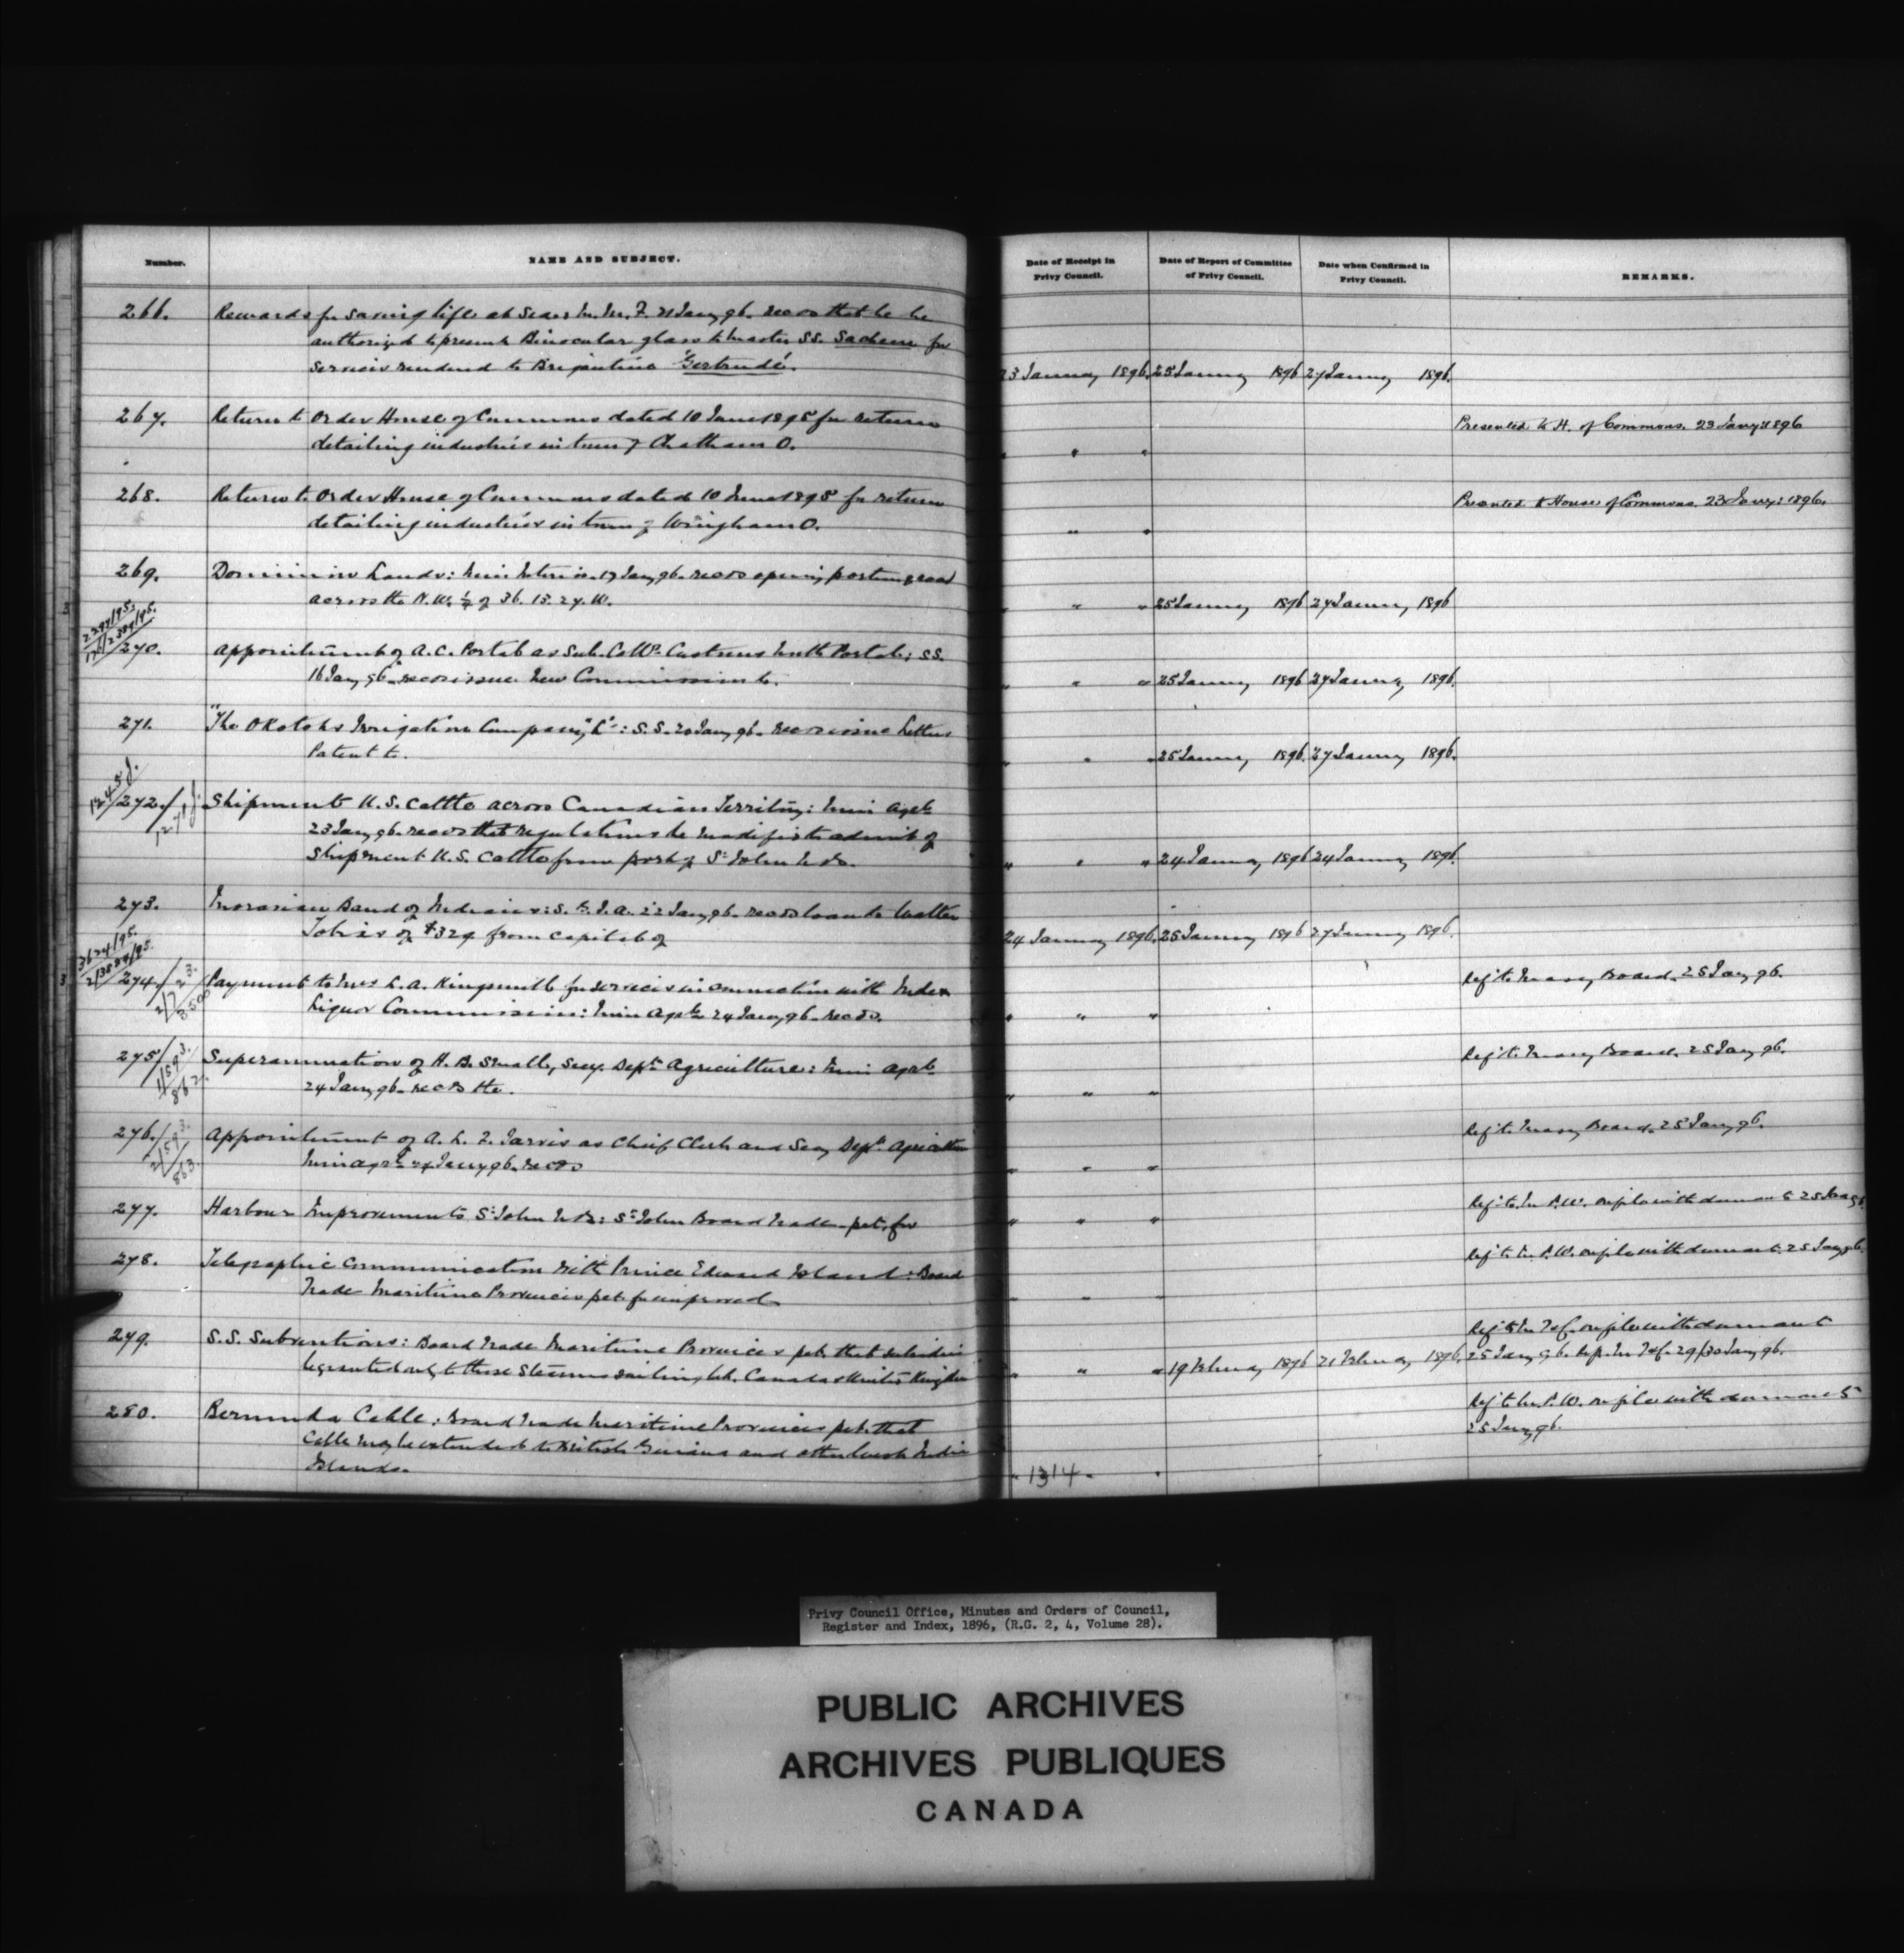 Number.
NAME AND SUBJECT.
Date of Receipt in
Privy Council.
Date of Report of Committee
of Privy Council.
Date when Confirmed in
Privy Council.
REMARKS.
266. Rewards for saving life at Sea: M. M. F. 21 Jany 96. recds that he be
authorized to present Binocular glass to Master SS. Sachem for
services rendered to Brigantine "Gertrude".
23 January 1896. 25 January 1896 27 January 1896.
267. Return to Order House of Commons dated 10 June 1895 for return
Presented to H. of Commons. 23 Jany: 1896
detailing industries in town of Chatham O.
" " "
268. Return to Order House of Commons dated 10 June 1895 for return
Presented to House of Commons. 23 Jany: 1896.
detailing industries in town of Wingham O.
" "
269. Dominion Lands: Min Interior 17 Jany 96. recds opening portion road
across the N.W. ¼ of 36. 15. 27. W.
" " " 25 January 1896 27 January 1896
2384/95.
270. Appointment of A. C. Portab as Sub. Collr. Customs North Portal: SS.
16 Jany 96. recds issue New Commission to.
" " " 25 January 1896 27 January 1896.
271. "The Okotoks Irrigation Company," Ld: S.S. 20 Jany 96. recds issue Letters
Patent to.
" " " 25 January 1896. 27 January 1896.
1245 J.
272. Shipment U.S. Cattle across Canadian Territory: Min Agrle
23 Jany 96. recds that regulations be modified to admit of
Shipment U.S. Cattle from port of St John N B.
" " " 24 January 1896 24 January 1896.
273. Moravian Band of Indians: S. G. I. A. 22 Jany 96. recds loan to Walter
Tobias of $324 from capital of
24 January 1896. 25 January 1896 27 January 1896.
3624/95.
274. Payment to Mrs L. A. Kingsmill for services in connection with
Refd to Treasy Board. 25 Jany 96.
Liquor Commission: Min Agrle 24 Jany 96. recds.
" " "
275. Superannuation of H. B. Small, Secy. Dept. Agriculture: Min Agrle
Refd to Treasy Board. 25 Jany 96.
24 Jany 96. recds the.
" " "
276. Appointment of A. L. T. Jarvis as Chief Clerk and Secy Dept. Agriculture
Refd to Treasy Board. 25 Jany 96.
Min Agrle 24 Jany 96. recds
" " "
277. Harbour Improvements St John N B: St John Board Trade pet. for
" " "
Refd to Mr P.W. reply with dormant 25 Jany 96.
278. Telegraphic Communication with Prince Edward Island: Board
Refd to Mr P.W. reply with dormant 25 Jany 96.
Trade Maritime Provinces pet. for improved
" " "
279. S.S. Subventions: Board Trade Maritime Provinces pet. that subsidies
Refd to Mr T&C. reply with dormant
be granted only to those Steamers sailing bet. Canada & United Kingdom
" " " 19 February 1896 21 February 1896. 25 Jany 96. Rep. Mr T&C. 29/30 Jany 96.
280. Bermuda Cable: Board Trade Maritime Provinces pet. that
Refd to Mr P.W. reply with dormant
25 Jany 96.
Cable may be extended to British Guiana and other West India
Islands.
" 1314 "
Privy Council Office, Minutes and Orders of Council,
Register and Index, 1896, (R.G. 2, 4, Volume 28).
PUBLIC ARCHIVES
ARCHIVES PUBLIQUES
CANADA